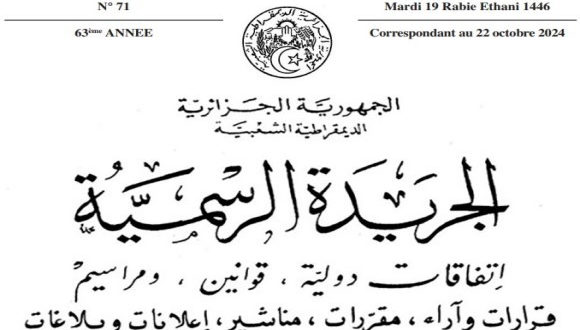 N° 71
Mardi 19 Rabie Ethani 1446
63ème ANNEE
Correspondant au 22 octobre 2024
الجمهورية الجزائرية
الديمقراطية الشعبية
الجريدة الرسمية
اتفاقات دولية، قوانين، ومراسيم
قرارات وآراء، مقررات، مناشير، إعلانات وبلاغات